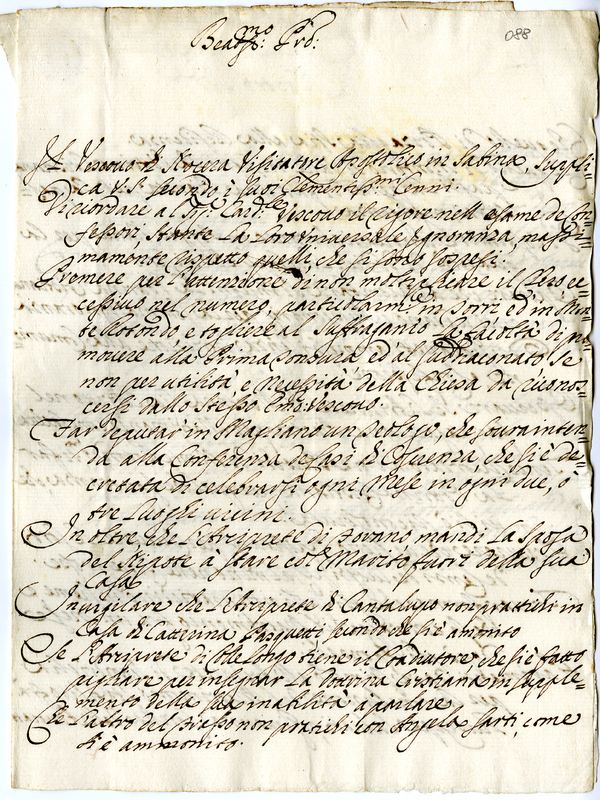 088
Beatmo: Prõ:
Il Vescovo di Nocera Visitatore Apostolico in Sabina, suppli=
ca V. Sà secondo i suoi Clementissmi Cenni.
Di ricordare al Sig: Cardle Vescovo il rigore nell esame de Con=
fessori, stante la loro universale ignoranza, massi=
mamente rispetto quelli che si sono sospesi.
Premere per l'attenzione di non moltiplicare il Clero ec=
cessivo nel numero, particolarmte in Torri ed in Mon=
te Rotondo e togliere al Suffraganio la facoltà di pro=
movere alla Prima Tonsura ed al Suddiaconato se
non per utilità e Necessità della Chiesa da riconos=
cersi dallo stesso Emo Vescovo.
Far deputar in Magliano un Teologo, che sovrainten=
da alla Conferenza de Casi di Coscienza, che si è de=
cretata di celebrarsi ogni Mese in ogni due, ò
tre Luoghi vicini.
In oltre che l'Arciprete di Fovano mandi la Sposa
del Nipote à stare col Marito fuori della sua
Casa
Invigilare che l'Arciprete di Cantalupo non pratichi in
Casa di Catterina Pasquetti secondo che si è amonito
Se l'Arciprete di Colle Longo tiene il Coadiutore, che si è fatto
pigliare per insegnar la Dottrina Cristiana in supple=
mento della sua inabilità a parlare
Che l'altro del non pratichi con Angela Sarti, come
si è ammonito.